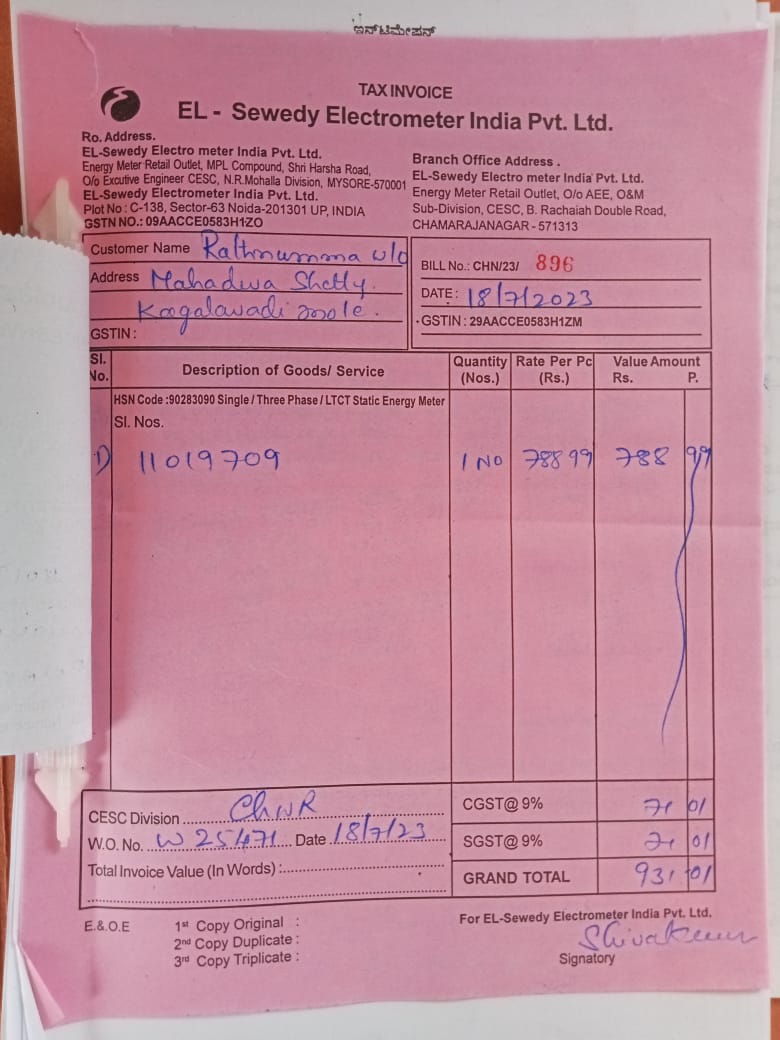 ಇನ್‌ಟಿಮೇಷನ್
TAX INVOICE
EL - Sewedy Electrometer India Pvt. Ltd.
Ro. Address.
EL-Sewedy Electro meter India Pvt. Ltd.
Energy Meter Retail Outlet, MPL Compound, Shri Harsha Road,
O/o Excutive Engineer CESC, N.R.Mohalla Division, MYSORE-570001
EL-Sewedy Electrometer India Pvt. Ltd.
Plot No : C-138, Sector-63 Noida-201301 UP, INDIA
GSTN NO.: 09AACCE0583H1ZO
Branch Office Address .
EL-Sewedy Electro meter India Pvt. Ltd.
Energy Meter Retail Outlet, O/o AEE, O&M
Sub-Division, CESC, B. Rachaiah Double Road,
CHAMARAJANAGAR - 571313
Customer Name Rathnumma w/o
Address Mahadwa Shetty.
Kagalavadi mole.
GSTIN :
BILL No.: CHN/23/ 896
DATE : 18/7/2023
GSTIN : 29AACCE0583H1ZM
Sl. No. Description of Goods/ Service Quantity (Nos.) Rate Per Pc (Rs.) Value Amount Rs. P.
HSN Code :90283090 Single / Three Phase / LTCT Static Energy Meter
Sl. Nos.
1) 11019709 1 No 788 99 788 99
CESC Division ChNR
W.O. No. W 25471 Date 18/7/23
Total Invoice Value (In Words) :
CGST@ 9% 71 01
SGST@ 9% 71 01
GRAND TOTAL 931 01
E.&.O.E
1st Copy Original :
2nd Copy Duplicate :
3rd Copy Triplicate :
For EL-Sewedy Electrometer India Pvt. Ltd.
Shivakumar
Signatory